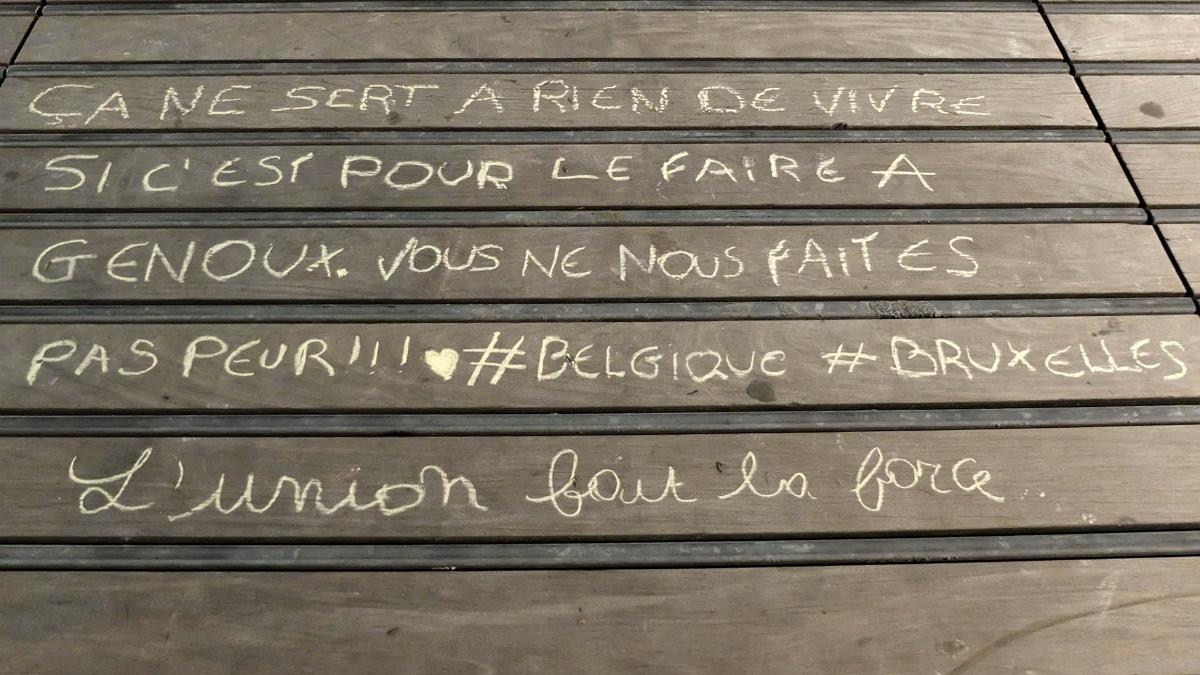 ÇA NE SERT A RIEN DE VIVRE
SI C'EST POUR LE FAIRE A
GENOUX. VOUS NE NOUS FAITES
PAS PEUR!!! ♥ #BELGIQUE #BRUXELLES
L'union fait la force..